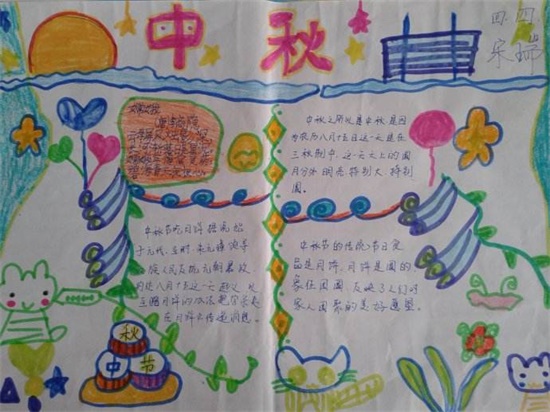 中秋
四.四.
宋瑞
中秋之所以是中秋是因
为农历八月十五日这一天是在
三秋制中,这一天天上的圆
月分外明亮特别大特别
圆。
中秋节吃月饼据流始
于元代,当时,朱元璋领导
汉人民反抗元朝暴政
约定八月十五这一天起义
互赠月饼的办法把字条
在月饼中传递消息。
中秋节的传统节日食
品是月饼,月饼是圆的
象征团圆,反映了人们对
家人团聚的美好愿望。
秋
中
节